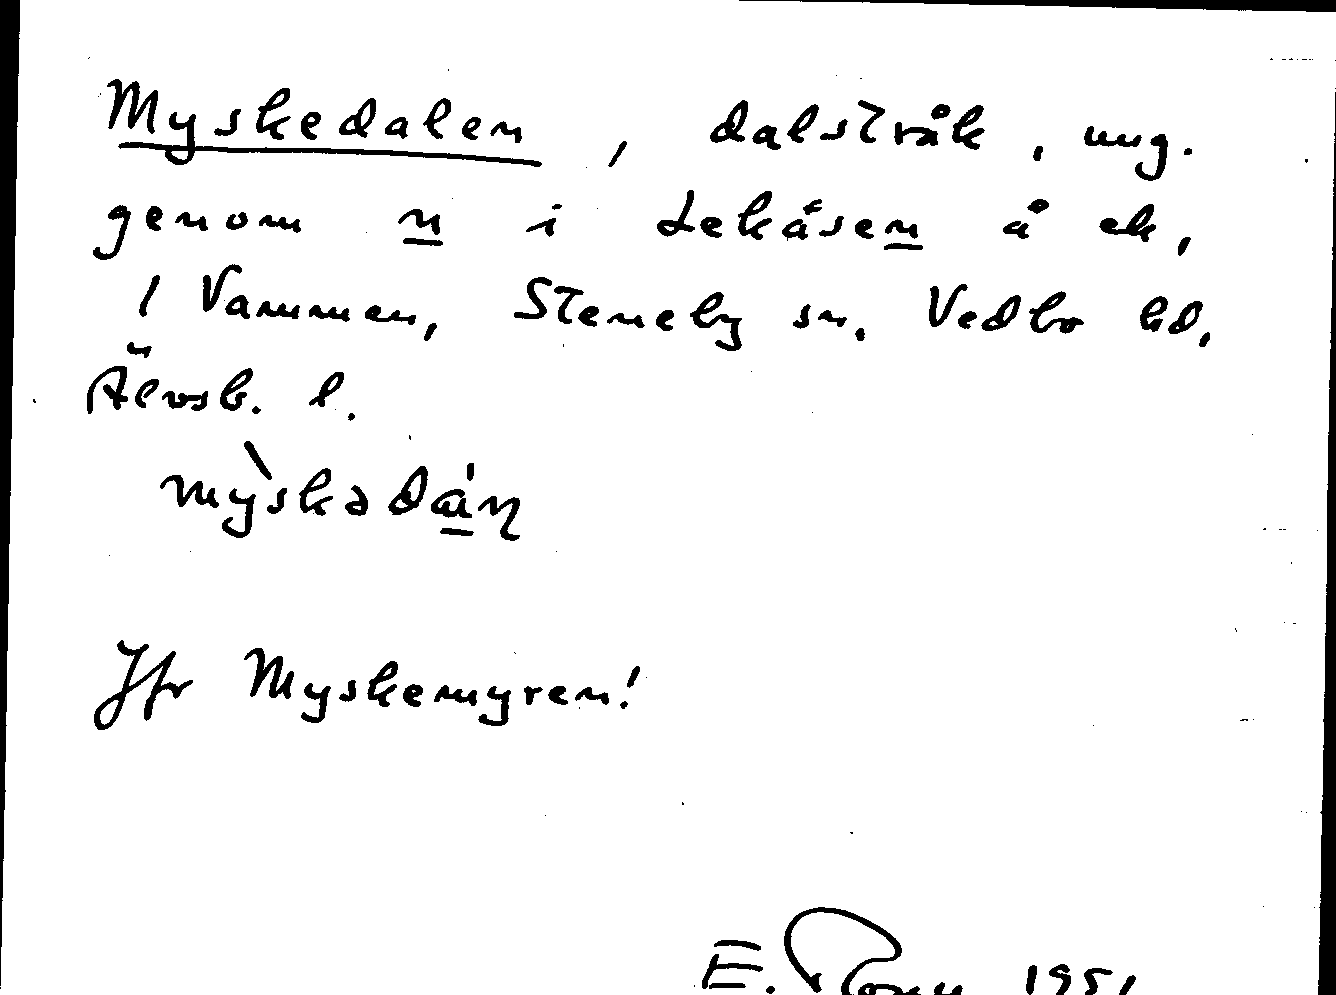 Myskedalen, dalstråk, ung.
genom n i Lekåsen å ek,
/ Vammen, Steneby sn, Vedbo hd,
Älvsb. l.
myskədáɳ
Jfr Myskemyren!
E. 1951